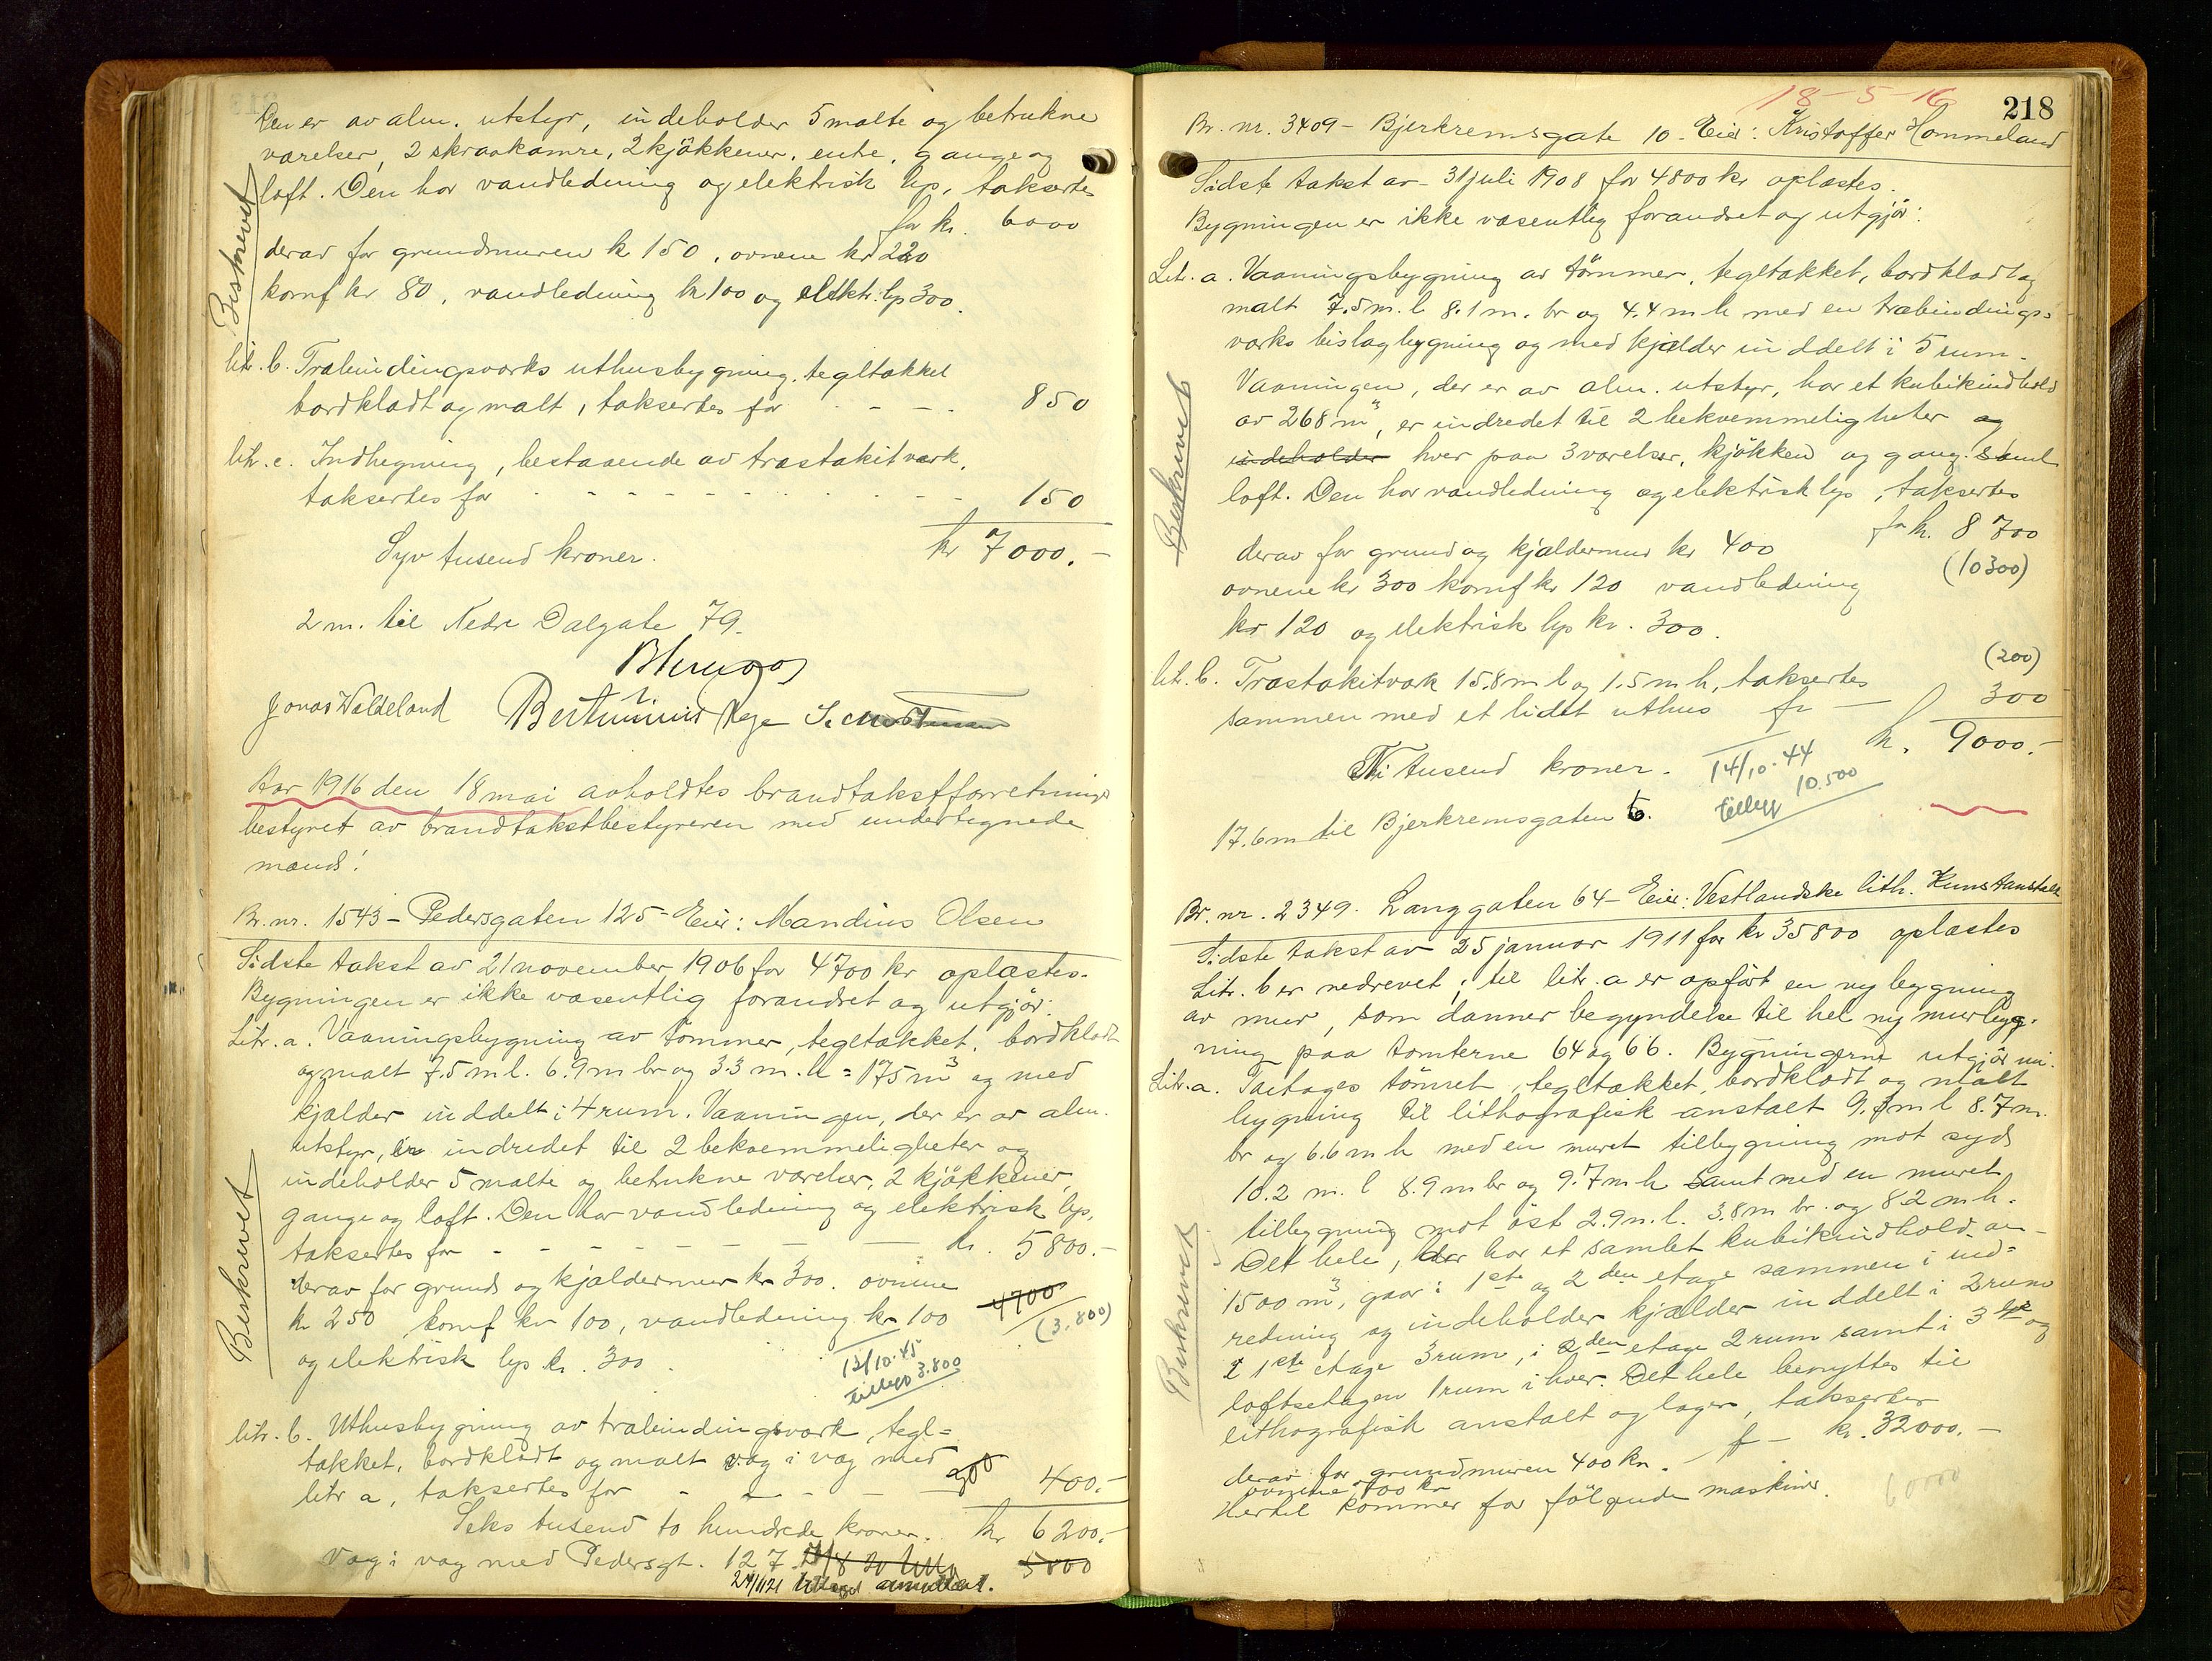 Den er av alm. utstyr, indeholder 5 malte og betrukne
værelser, 2 skraakamre, 2 kjökkener, entre, gange og
loft. Den har vandledning og elektrisk lys, taksertes
for kr. 6000
derav for grundmuren kr 150, ovnene kr 220
komf kr 80, vandledning kr 100 og elektr. lys 300.
Beskrevet
litr. b. Træbindingsverks uthusbygning, tegltækket
bordklædt og malt, taksertes for - - - 850
litr. c. Indhegning, bestaaende av træstakitværk,
taksertes for - - - - - - - - 150
Syv tusend kroner. kr 7000.-
2 m. til Nedre Dalgate 79.
Jonas Waldeland
Aar 1916 den 18 mai avholdtes brandtakstforretning
bestyret av brandtakstbestyreren med undertegnede
mænd:
Br. nr. 1543 - Pedersgaten 125 - Eier: Mandius Olsen
Sidste takst av 21 november 1906 for 4700 kr oplæstes.
Bygningen er ikke væsentlig forandret og utgjör:
Litr. a. Vaaningsbygning av tömmer, tegltækket, bordklædt
og malt 7.5 m l. 6.9 m br og 3.3 m. h = 175 m³ og med
kjælder inddelt i 4 rum. Vaaningen, der er av alm.
utstyr, er indredet til 2 bekvemmeligheter og
indeholder 5 malte og betrukne værelser, 2 kjökkener,
gange og loft. Den har vandledning og elektrisk lys,
taksertes for - - - - - - kr. 5800.-
derav for grund og kjældermur kr 300. ovnene
kr 250, komf kr 100, vandledning kr 100 4700
(3.800)
og elektrisk lys kr. 300.
12/10.45
tillegg 3.800
Beskrevet
litr. b. Uthusbygning av træbindingsværk, tegl=
tækket, bordklædt og malt væg i væg med
litr a, taksertes for - - - - 900 400.-
Seks tusend to hundrede kroner. kr 6200.-
Væg i væg med Pedersgt. 127. 5800
18-5-16
218
Br. nr. 3409 - Bjerkremsgate 10 - Eier: Kristoffer Hommeland
Sidste takst av - 31 juli 1908 for 4800 kr oplæstes.
Bygningen er ikke væsentlig forandret og utgjör:
Litr. a. Vaaningsbygning av tömmer, tegltækket, bordklædt og
malt 7.5 m. l. 8.1 m. br og 4.4 m h med en træbindings=
værks bislagbygning og med kjælder inddelt i 5 rum.
Vaaningen, der er av alm. utstyr, har et kubikindhold
av 268 m³, er indredet til 2 bekvemmeligheter og
indeholder hver paa 3 værelser, kjökken og gang samt
loft. Den har vandledning og elektrisk lys, taksertes
for kr. 8700
derav for grund og kjældermur kr 400 (10300)
ovnene kr 300 komf kr 120 vandledning
kr 120 og elektrisk lys kr. 300.
Beskrevet
(200)
litr. b. Træstakitværk 15.8 m l og 1.5 m h, taksertes
sammen med et lidet uthus for - 300
Ni tusend kroner. kr. 9000.-
14/10.44
10.500
tillegg
17.6 m til Bjerkremsgaten 6.
Br. nr. 2349. Langgaten 64 - Eier: Vestlandske lith. Kunstanstalt
Sidste takst av 25 januar 1911 for kr 35800 oplæstes
Litr. b er nedrevet; til litr. a er opfört en ny bygning
av mur, som danner begyndelse til hel ny murbyg-
ning paa tomterne 64 og 66. Bygningerne utgjör nu:
Litr. a. Toetages tömret, tegltækket, bordklædt og malt
bygning til lithografisk anstalt 9.3 m l 8.7 m.
br og 6.6 m h med en muret tilbygning mot syd
10.2 m. l 8.9 m br og 9.7 m h samt med en muret
tilbygning mot öst 2.9 m. l. 3.8 m br. og 8.2 m h.
Det hele, der har et samlet kubikindhold av
1500 m³, gaar i 1ste og 2den etage sammen i ind=
redning og indeholder kjælder inddelt i 2 rum
i 1ste etage 3 rum, i 2den etage 2 rum samt i 3die og
loftsetagen 1 rum i hver. Det hele benyttes til
lithografisk anstalt og lager, taksertes
for - kr. 32000.-
Beskrevet
derav for grundmuren 400 kr.
ovnene 700 kr
Hertil kommer for fölgende maskiner. 60000